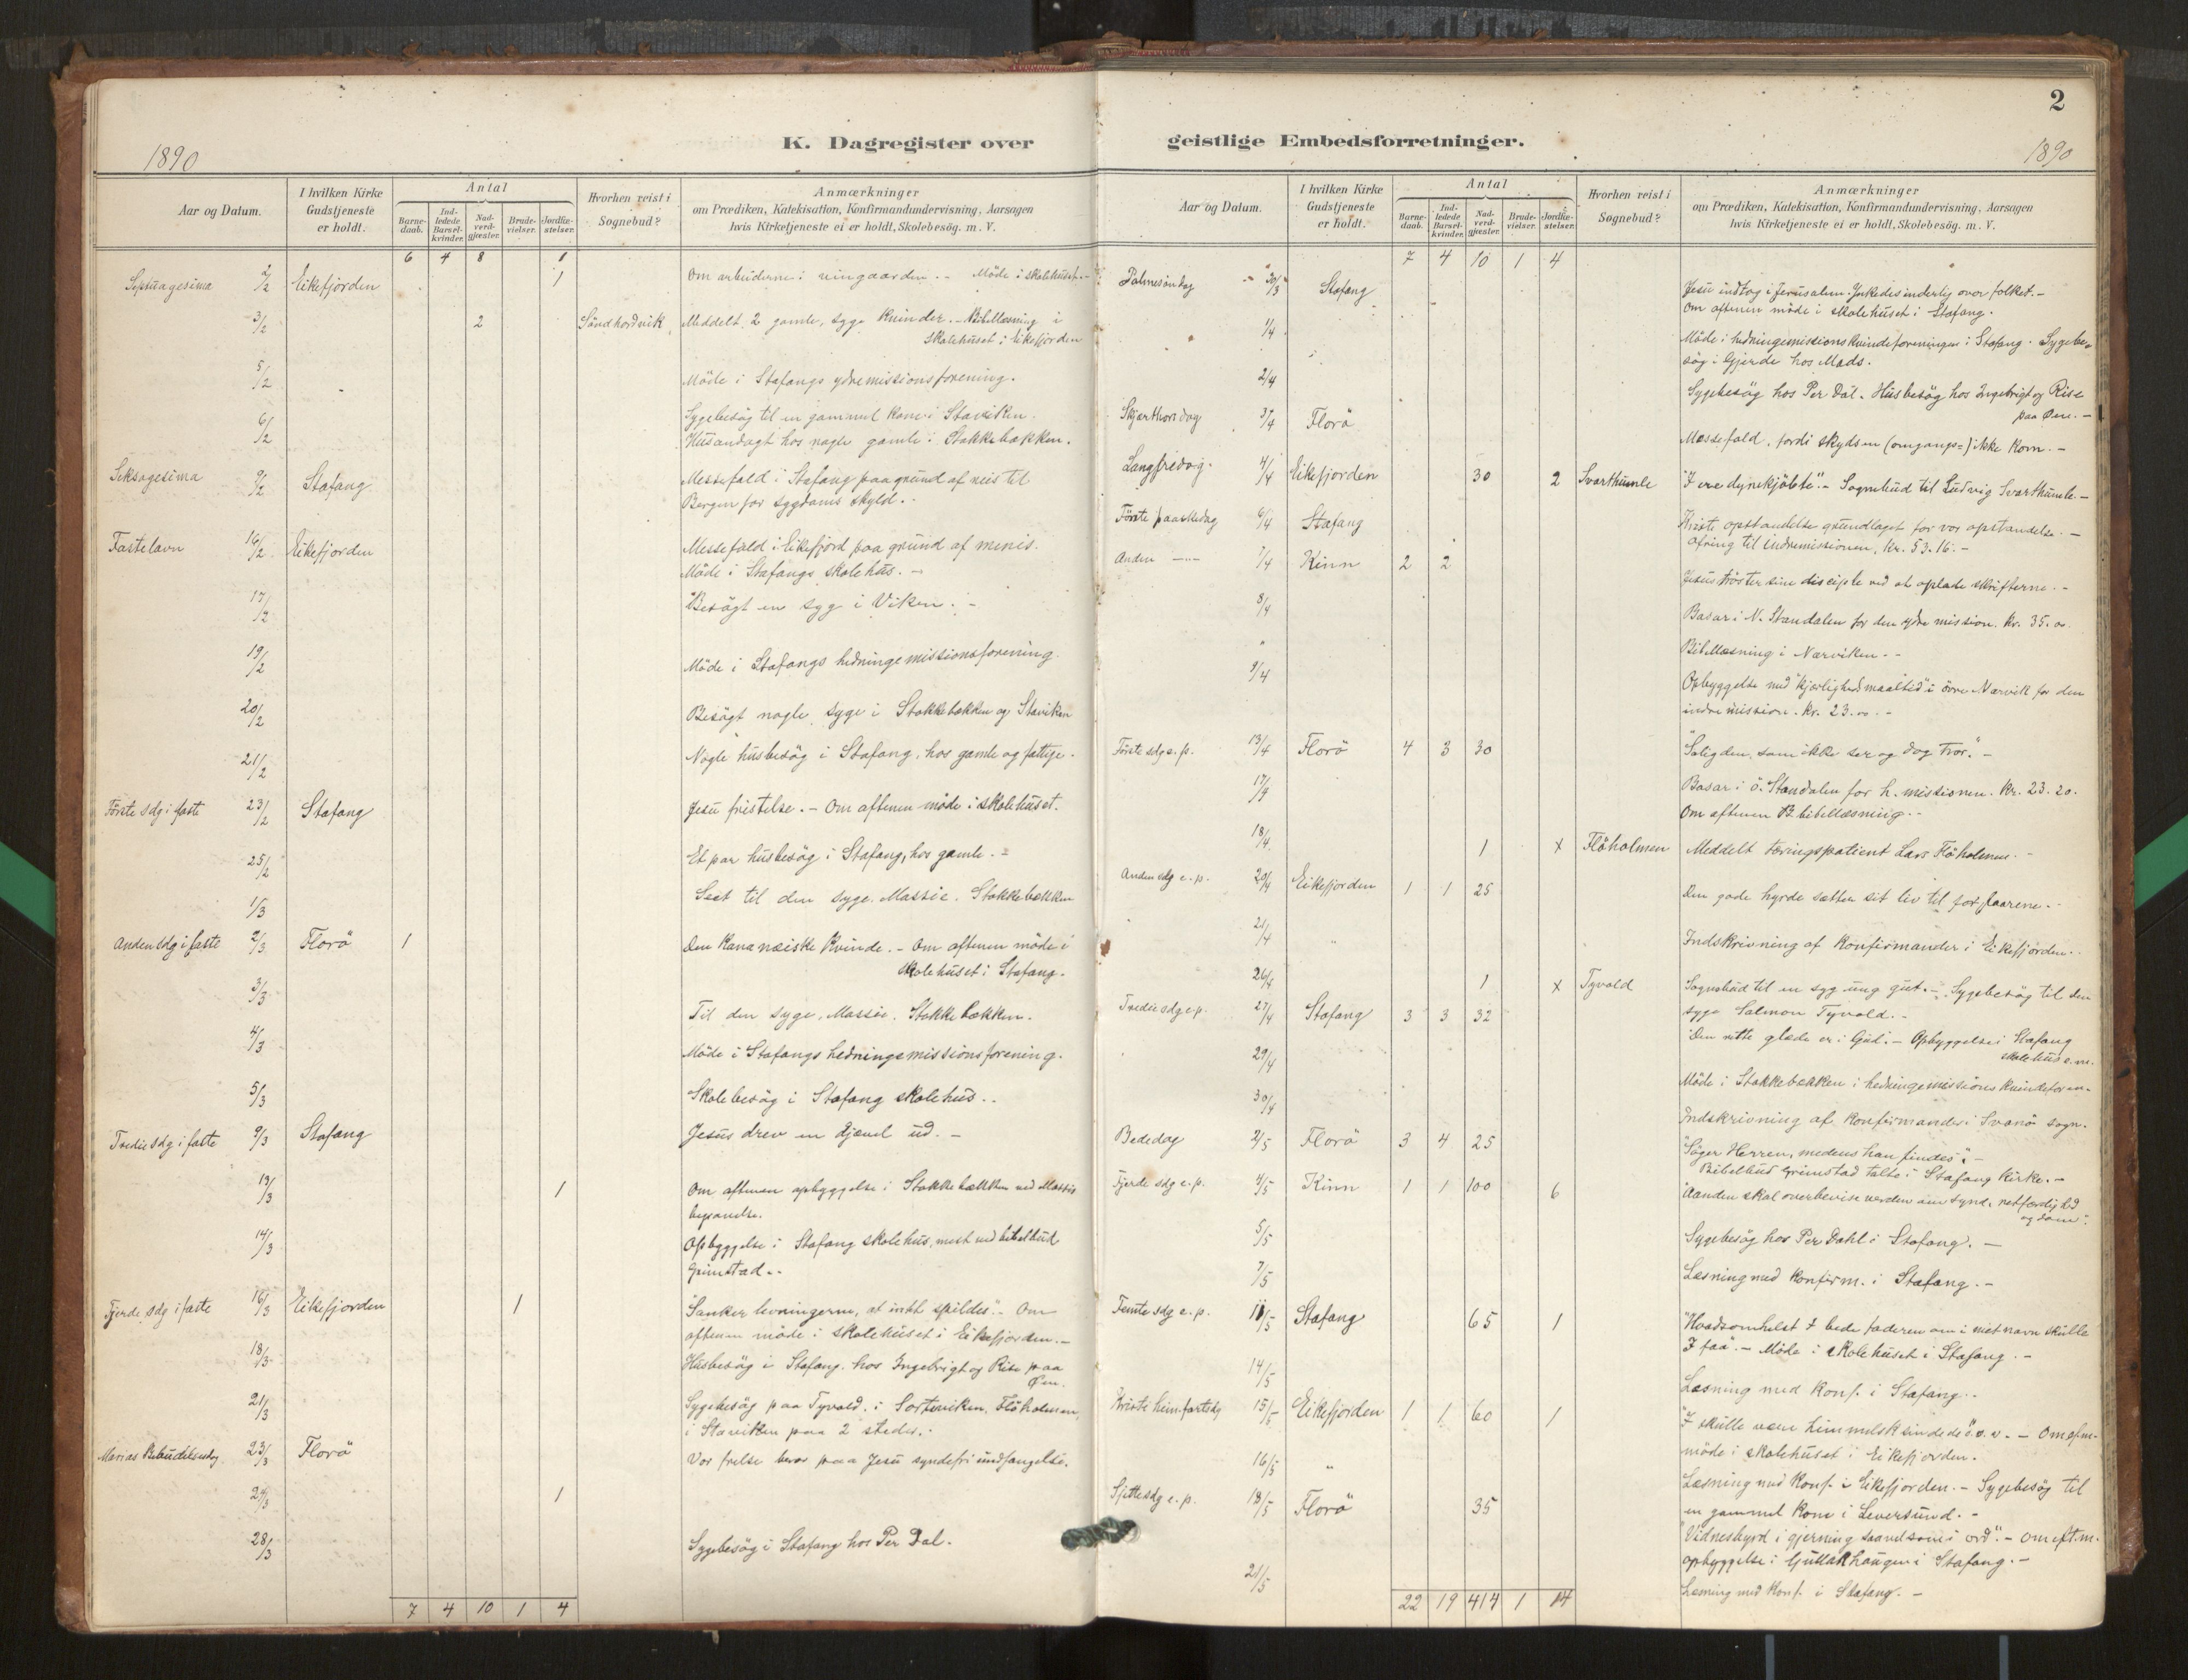 2
K. Dagregister over geistlige Embedsforretninger.
1890
1890
Aar og Datum.
I hvilken Kirke Gudstjeneste er holdt.
Antal
Barne-daab.
Ind-ledede Barsel-kvinder.
Nad-verd-gjæster.
Brude-vielser.
Jordfæ-stelser.
Hvorhen reist i Sognebud?
Anmærkninger
om Prædiken, Katekisation, Konfirmandundervisning, Aarsagen
hvis Kirketjeneste ei er holdt, Skolebesög. m. V.
6 4 8 1
Septuagesima 2/2 Eikefjorden 1 Om arbeiderne i vingaarden. - Möde i skolehuset. -
3/2 2 Söndhordvik Meddelt 2 gamle, syge kvinder. - Bibellæsning i
skolehuset i Eikefjorden
5/2 Möde i Stafangs ydremissionsforening.
6/2 Sygebesög til en gammel kone i Staviken.
Husandagt hos nogle gamle i Stokkebækken.
Seksagesima 9/2 Stafang Messefald i Stafang paa grund af reis til
Bergen for sygdoms skyld. -
Fastelavn 16/2 Eikefjorden Messefald i Eikefjord paa grund af menis.
Möde i Stafangs skolehus. -
17/2 Besögt en syg i Viken. -
19/2 Möde i Stafangs hedningemissionsforening.
20/2 Besögt nogle syge i Stokkebækken og Staviken
21/2 Nogle husbesög i Stafang, hos gamle og fattige.
Förste sdg i faste 23/2 Stafang Jesu fristelse. - Om aftenen möde i skolehuset.
25/2 Et par husbesög i Stafang, hos gamle. -
1/3 Seet til den syge. Massie. Stokkebækken
Anden sdg i faste 2/3 Florö 1 Den kananæiske kvinde. - Om aftenen möde i
skolehuset i Stafang.
3/3 Til den syge, Massie. Stokkebækken.
4/3 Möde i Stafangs hedningemissionsforening.
5/3 Skolebesög i Stafang skolehus. -
Tredie sdg i faste 9/3 Stafang Jesus drev en djævel ud. -
13/3 1 Om aftenen opbyggelse i Stokkebækken ved Massies
begravelse.
14/3 Opbyggelse i Stafang skolehus, mest ved bibelbud
Grimstad. -
Fjerde sdg i faste 16/3 Eikefjorden 1 "Sanker levningerne, at intet spildes". - Om
aftenen möde i skolehuset i Eikefjorden. -
18/3 Husbesög i Stafang hos Ingebrigt og Rise paa
Öen.
21/3 Sygebesög paa Tyvold, i Sorteviken, Flöholmen,
i Staviken paa 2 steder. -
Marias Bebudelsesdg 23/3 Florö Vor frelse beror paa Jesu syndefri undfangelse.
24/3 1
28/3 Sygebesög i Stafang hos Per Dal.
7 4 10 1 4
Aar og Datum.
I hvilken Kirke Gudstjeneste er holdt.
Antal
Barne-daab.
Ind-ledede Barsel-kvinder.
Nad-verd-gjæster.
Brude-vielser.
Jordfæ-stelser.
Hvorhen reist i Sognebud?
Anmærkninger
om Prædiken, Katekisation, Konfirmandundervisning, Aarsagen
hvis Kirketjeneste ei er holdt, Skolebesög. m. V.
7 4 10 1 4
Palmesöndag 30/3 Stafang Jesu indtog i Jerusalem. Ynkedes inderlig over folket. -
Om aftenen möde i skolehuset i Stafang.
1/4 Möde i hedningemissionskvindeforeningen i Stafang. Sygebe-
sög i Gjerde hos Mads.
2/4 Sygebesög hos Per Dal. Husbesög hos Ingebrigt og Rise
paa Öen. -
Skjærthorsdag 3/4 Florö Messefald, fordi skydsen (omgangs=) ikke kom. -
Langfredag 4/4 Eikefjorden 30 2 Svarthumle "I ere dyrekjöbte". - Sognebud til Ludvig Svarthumle. -
Förste paaskedag 6/4 Stafang Kristi opstandelse grundlaget for vor opstandelse. -
Ofring til indremissionen, Kr. 53.16. -
Anden -"- 7/4 Kinn 2 2 Jesus tröster sine disciple ved at oplade skrifterne. -
8/4 Basar i N. Standalen for den ydre mission. Kr. 35.00.
" Bibellæsning i Narviken. -
9/4 Opbyggelse med "kjærlighedsmaaltid" i övre Narvik for den
indre mission. Kr. 23.00. -
Förste sdg e. p. 13/4 Florö 4 3 30 "Salig den, som ikke ser og dog tror." -
17/4 Basar i ö. Standalen for h. missionen. Kr. 23.20.
Om aftenen bibellæsning. -
18/4 1 x Flöholmen Meddelt tæringspatient Lars Flöholmen. -
Anden sdg e. p. 20/4 Eikefjorden 1 1 25 Den gode hyrde sætter sit liv til for faarene. -
21/4 " Indskrivning af konfirmander i Eikefjorden. -
26/4 1 x Tyvold Sognebud til en syg ung gut. - Sygebesög til den
syge Salmon Tyvold. -
Tredie sdg e. p. 27/4 Stafang 3 3 32 Den rette glæde er i Gud. - Opbyggelse i Stafang
skolehus e. m.
29/4 Möde i Stokkebækken i hedningemissionskvindeforen-
30/4 Indskrivning af konfirmander i Svanö sogn.
Bededag 2/5 Florö 3 4 25 "Söger Herren, medens han findes". -
Bibelbud Grimstad talte i Stafang kirke. -
Fjerde sdg e. p. 4/5 Kinn 1 1 100 6 "Aanden skal overbevise verden om synd, retfærdighed
og dom".
5/5 Sygebesög hos Per Dahl i Stafang. -
7/5 Læsning med konfirm. i Stafang. -
Femte sdg e. p. 11/5 Stafang 65 1 "Hvadsomhelst I bede faderen om i mit navn skulle
I faa". - Möde i skolehuset i Stafang. -
14/5 Læsning med konf. i Stafang. -
Kristi himmfartsdg 15/5 Eikefjorden 1 1 60 1 "I skulle være himmelsksindede" o. s. v. - Om ef.m.
möde i skolehuset i Eikefjorden.
16/5 " Læsning med konf. i Eikefjorden. - Sygebesög til
en gammel kone i Leversund. -
Sjette sdg e. p. 18/5 Florö 35 "Vidnesbyrd i gjerning saavelsom i ord". - Om eft.m.
opbyggelse i Gullakhaugen i Stafang. -
21/5 Læsning med konf. i Stafang. -
22 19 414 1 14